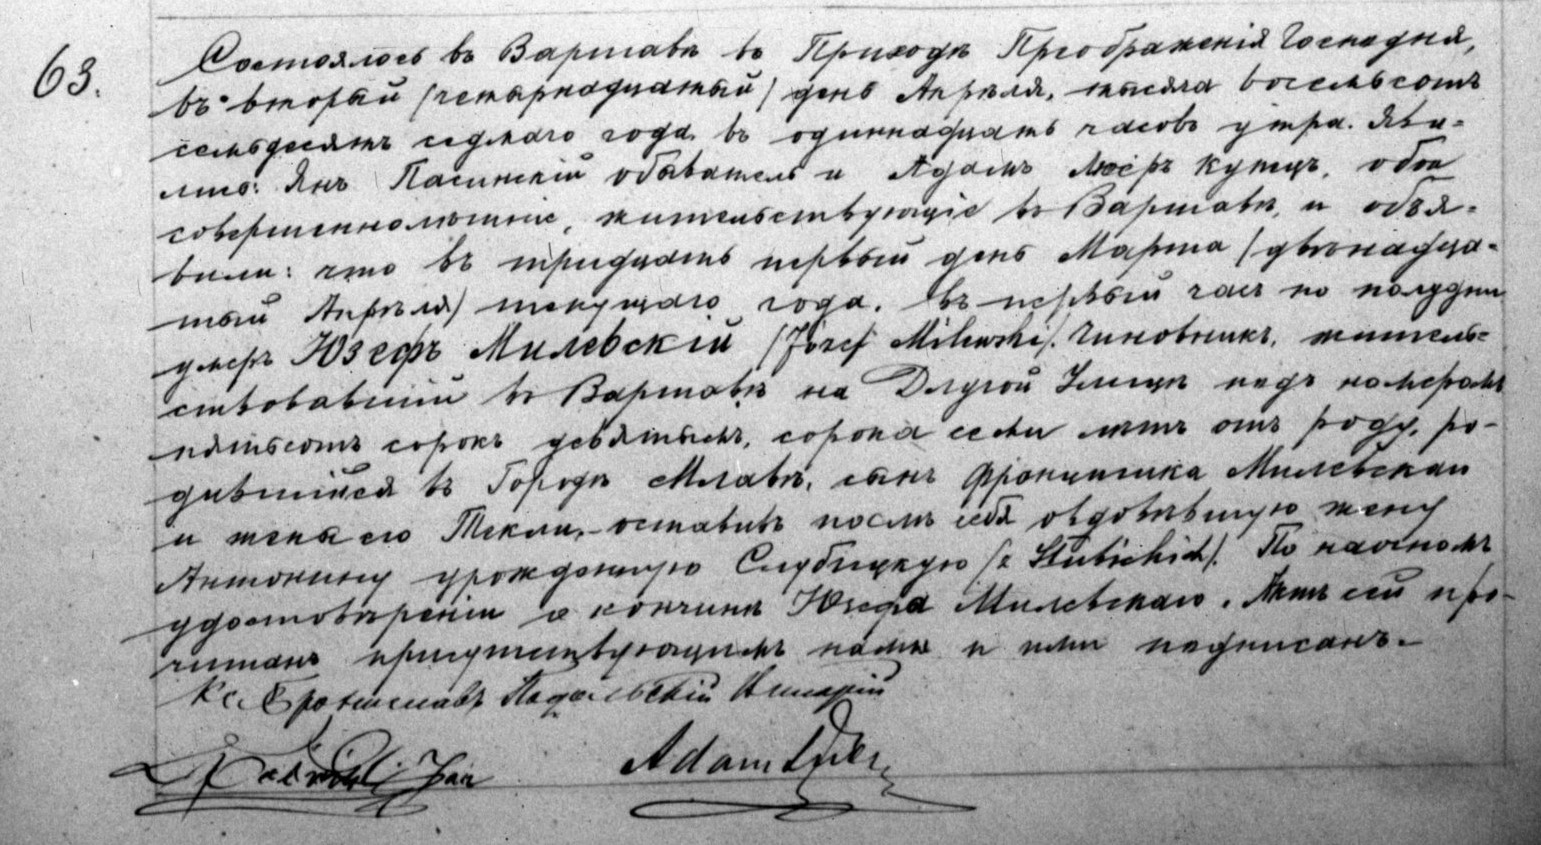 63.
Состоялось въ Варшавѣ въ Приходѣ Преображенія Господня,
въ вторый (четырнадцатый) день Апрѣля, тысяча восемьсотъ
семьдесятъ седмаго года въ одиннадцать часовъ утра. Яви-
лись: Янъ Пасинскій обыватель и Адамъ купецъ, оба
совершеннолѣтніе, жительствующіе въ Варшавѣ, и объя-
вили: что въ тридцать первый день Марта (двѣнадца-
тый Апрѣля) текущаго года, въ первый часъ по полудни
умеръ Юзефъ Милевскій (Józef Milewski). Чиновникъ, житель-
ствовавшій въ Варшавѣ на Длугой Улицѣ подъ номеромъ
пятьсотъ сорокъ девятымъ, сорока семи лѣтъ отъ роду, ро-
дившійся въ Городѣ Млавѣ, сынъ Францишка Милевскаго
и жены его Текли, оставивъ послѣ себя овдовѣвшую жену
Антонину урожденную Слубицкую (z Słubickich). По наочномъ
удостовѣреніи о кончинѣ Юзефа Милевскаго, Актъ сей про-
читанъ присутствующимъ нами и ими подписанъ.
Кс. Брониславъ Подольскій Викарій
Jan Adam